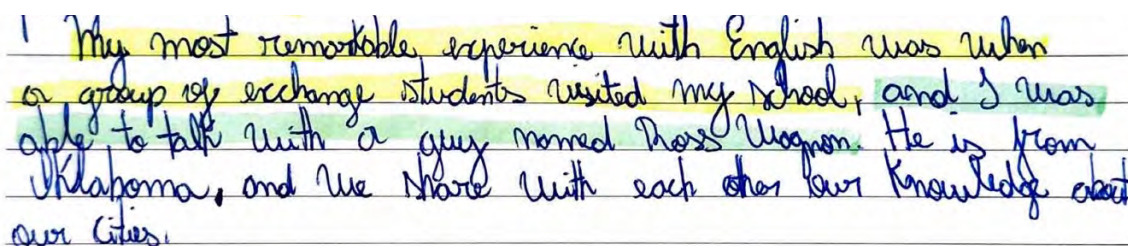 1 My most remarkable experience with English was when
a group of exchange students visited my school, and I was
able to talk with a guy named Ross Wagnon. He is from
Oklahoma, and we share with each other our knowledge about
our cities.